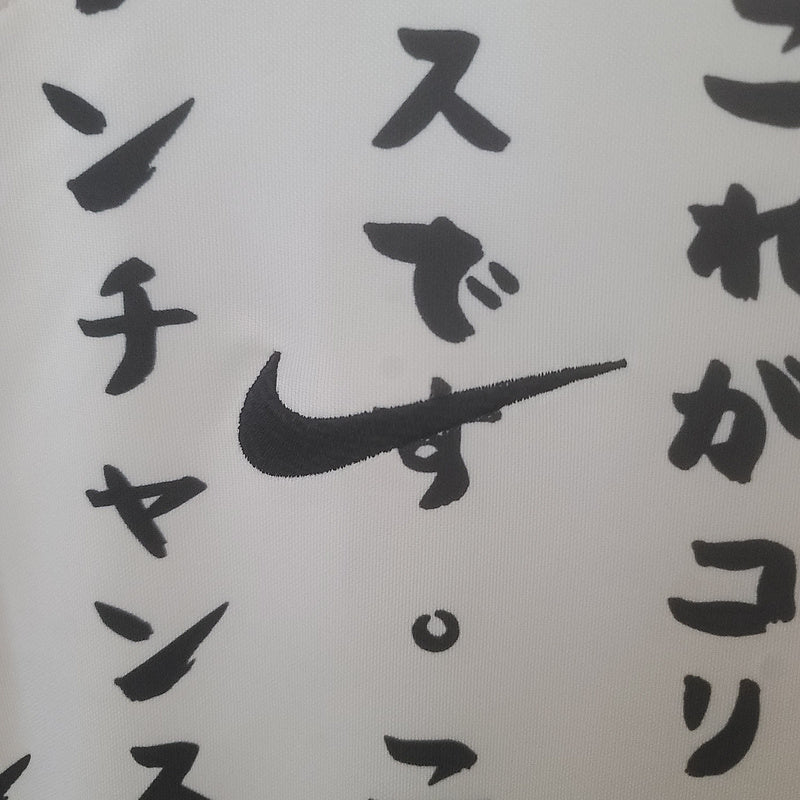 これがコリ
スです。
ンチャンス